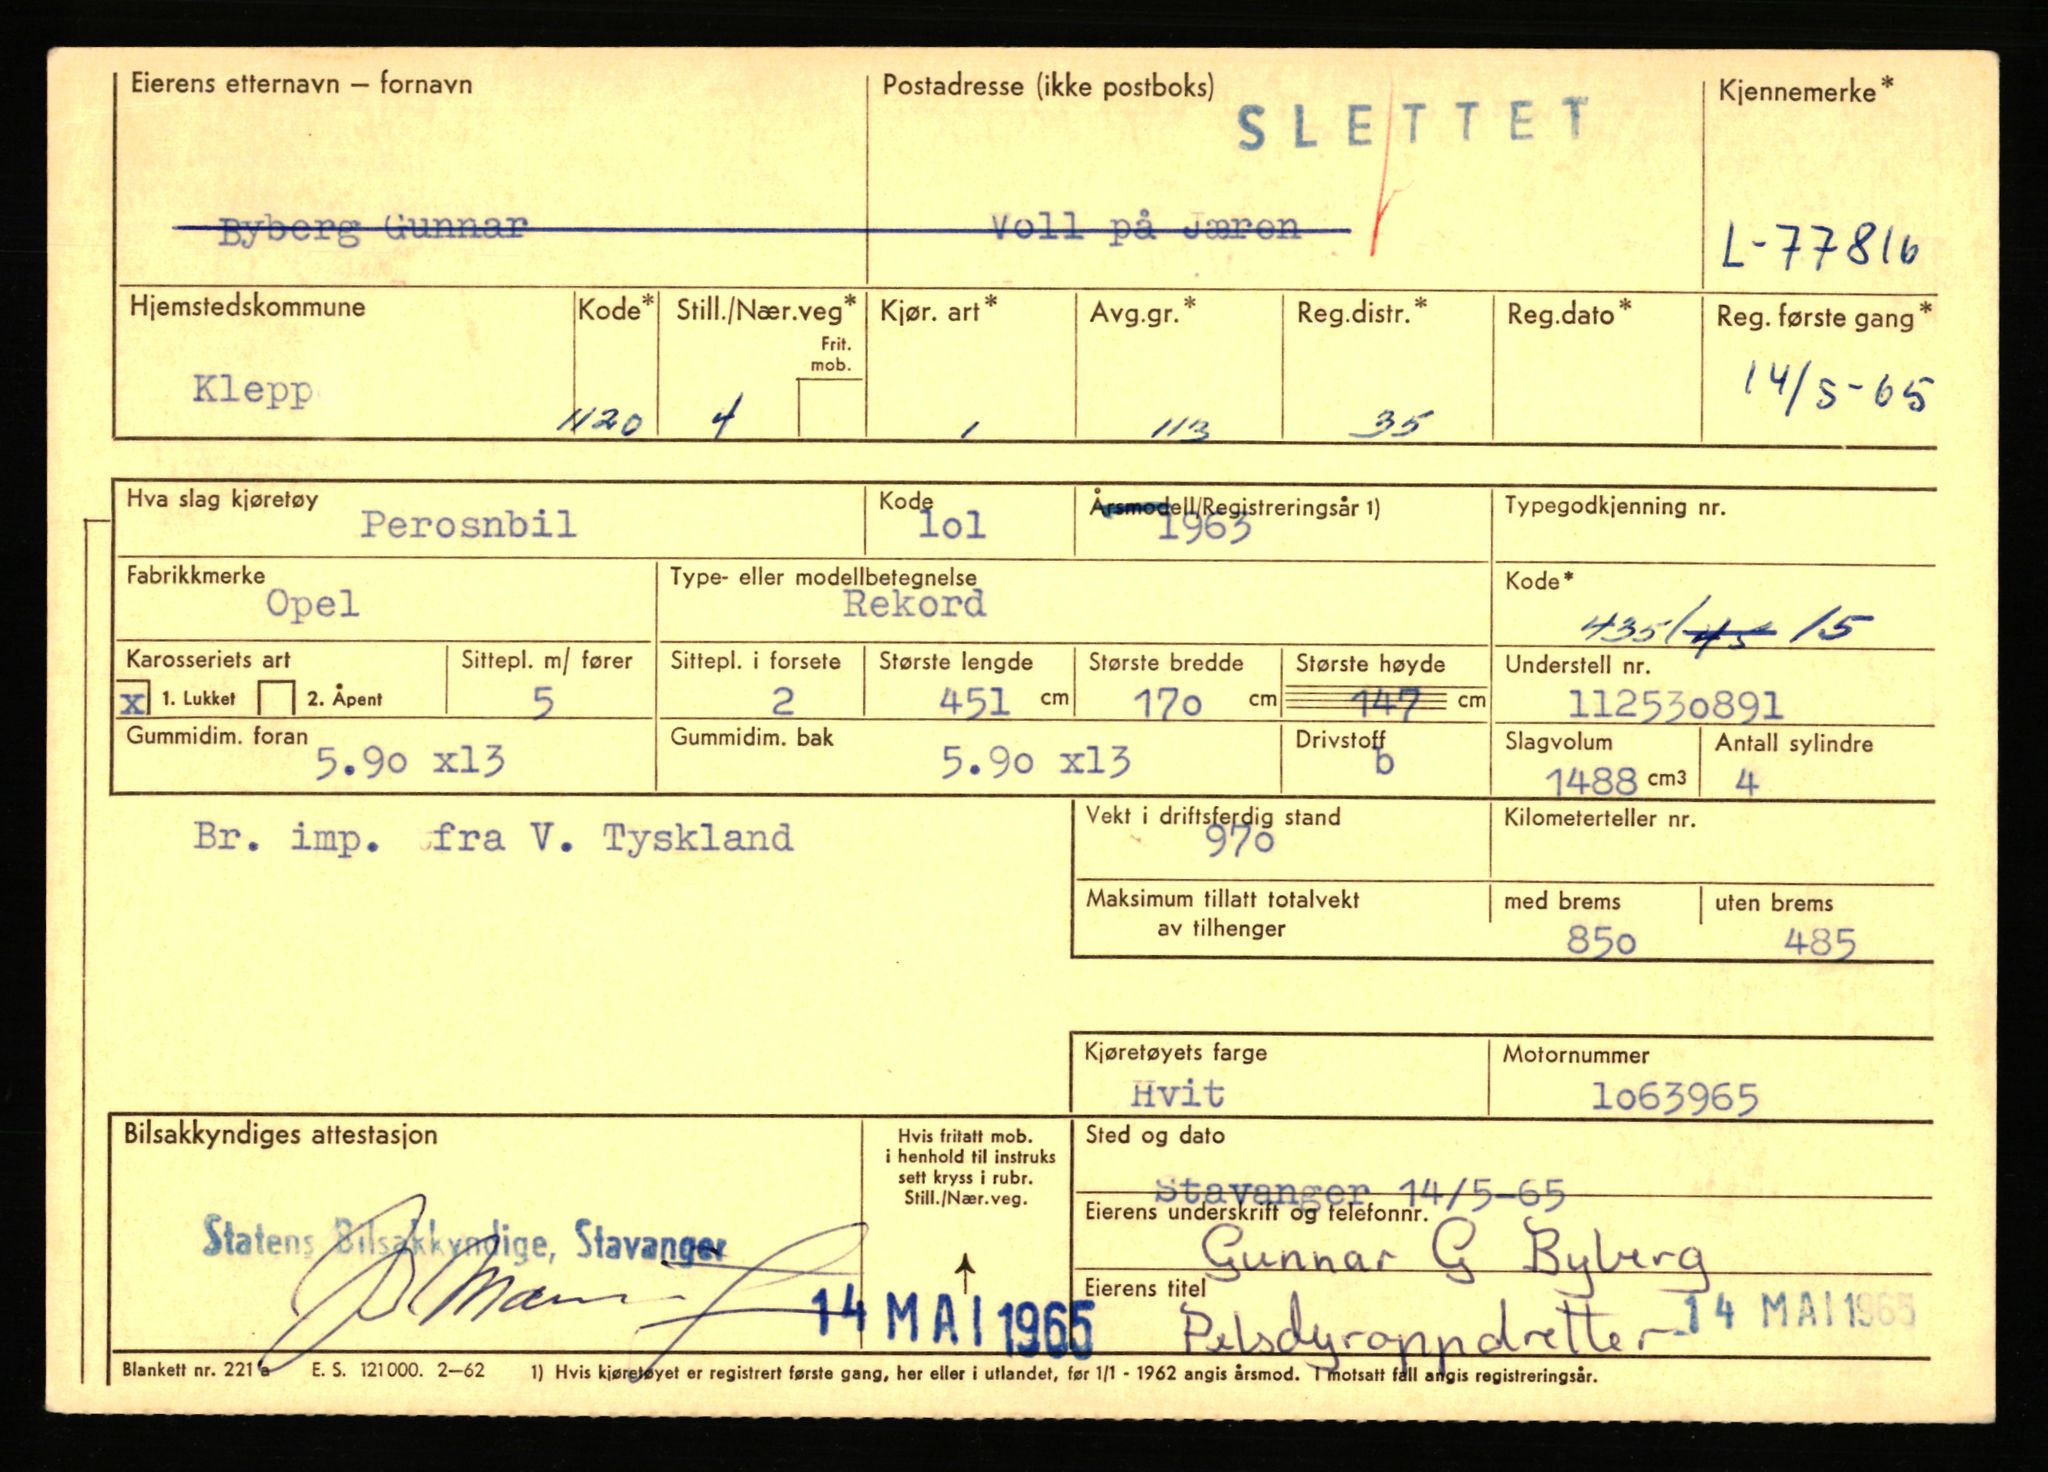 Eierens etternavn – fornavn Postadresse (ikke postboks) Kjennemerke*
SLETTET
Byberg Gunnar Voll på Jæren L-77816
Hjemstedskommune Kode* Still./Nær.veg* Kjør. art* Avg.gr.* Reg.distr.* Reg.dato* Reg. første gang*
Frit. mob.
Klepp 1120 4 1 113 35 14/5-65
Hva slag kjøretøy Kode Årsmodell/Registreringsår 1) Typegodkjenning nr.
Perosnbil lol 1963
Fabrikkmerke Type- eller modellbetegnelse Kode*
Opel Rekord 435/45 15
Karosseriets art Sittepl. m/ fører Sittepl. i forsete Største lengde Største bredde Største høyde Understell nr.
x 1. Lukket 2. Åpent 5 2 451 cm 170 cm 147 cm 112530891
Gummidim. foran Gummidim. bak Drivstoff Slagvolum Antall sylindre
5.90 x13 5.90 x13 b 1488 cm3 4
Br. imp. fra V. Tyskland
Vekt i driftsferdig stand Kilometerteller nr.
970
Maksimum tillatt totalvekt av tilhenger med brems uten brems
850 485
Kjøretøyets farge Motornummer
Hvit 1063965
Bilsakkyndiges attestasjon
Hvis fritatt mob.
i henhold til instruks
sett kryss i rubr.
Still./Nær.veg.
Sted og dato
Stavanger 14/5-65
Statens Bilsakkyndige, Stavanger
Eierens underskrift og telefonnr.
Gunnar G Byberg
Eierens titel
14 MAI 1965 Pelsdyroppdretter 14 MAI 1965
Blankett nr. 221 a E. S. 121000. 2–62 1) Hvis kjøretøyet er registrert første gang, her eller i utlandet, før 1/1 - 1962 angis årsmod. I motsatt fall angis registreringsår.